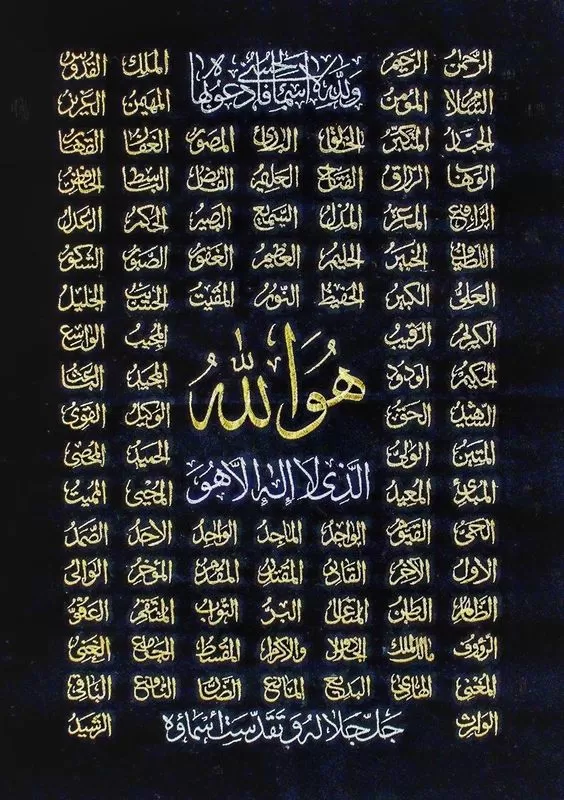 الرحمن الرحيم ولله الاسماء الحسنى فادعوه بها الملك القدوس
السلام المؤمن المهيمن العزيز
الجبار المتكبر الخالق البارئ المصور الغفار القهار
الوهاب الرزاق الفتاح العليم القابض الباسط الخافض
الرافع المعز المذل السميع البصير الحكم العدل
اللطيف الخبير الحليم العظيم الغفور الصبور الشكور
العلي الكبير الحفيظ النور المقيت الحسيب الجليل
الكريم الرقيب المجيب الواسع
الحكيم الودود المجيد الباعث
هُوَ اللّٰهُ
الشهيد الحق الوكيل القوي
المتين الولي الحميد المحصي
الَّذِى لَا إِلٰهَ إِلَّا هُوَ
المبدئ المعيد المحيي المميت
الحي القيوم الواجد الماجد الواحد الاحد الصمد
الاول الاخر القادر المقتدر المقدم المؤخر الوالي
الظاهر الباطن المتعالي البر التواب المنتقم العفو
الرؤوف مالك الملك ذو الجلال والاكرام المقسط الجامع الغني
المغني الهادي البديع المانع الضار النافع الباقي
الوارث جَلَّ جَلَالُهُ وَتَقَدَّسَتْ أَسْمَاؤُهُ الرشيد